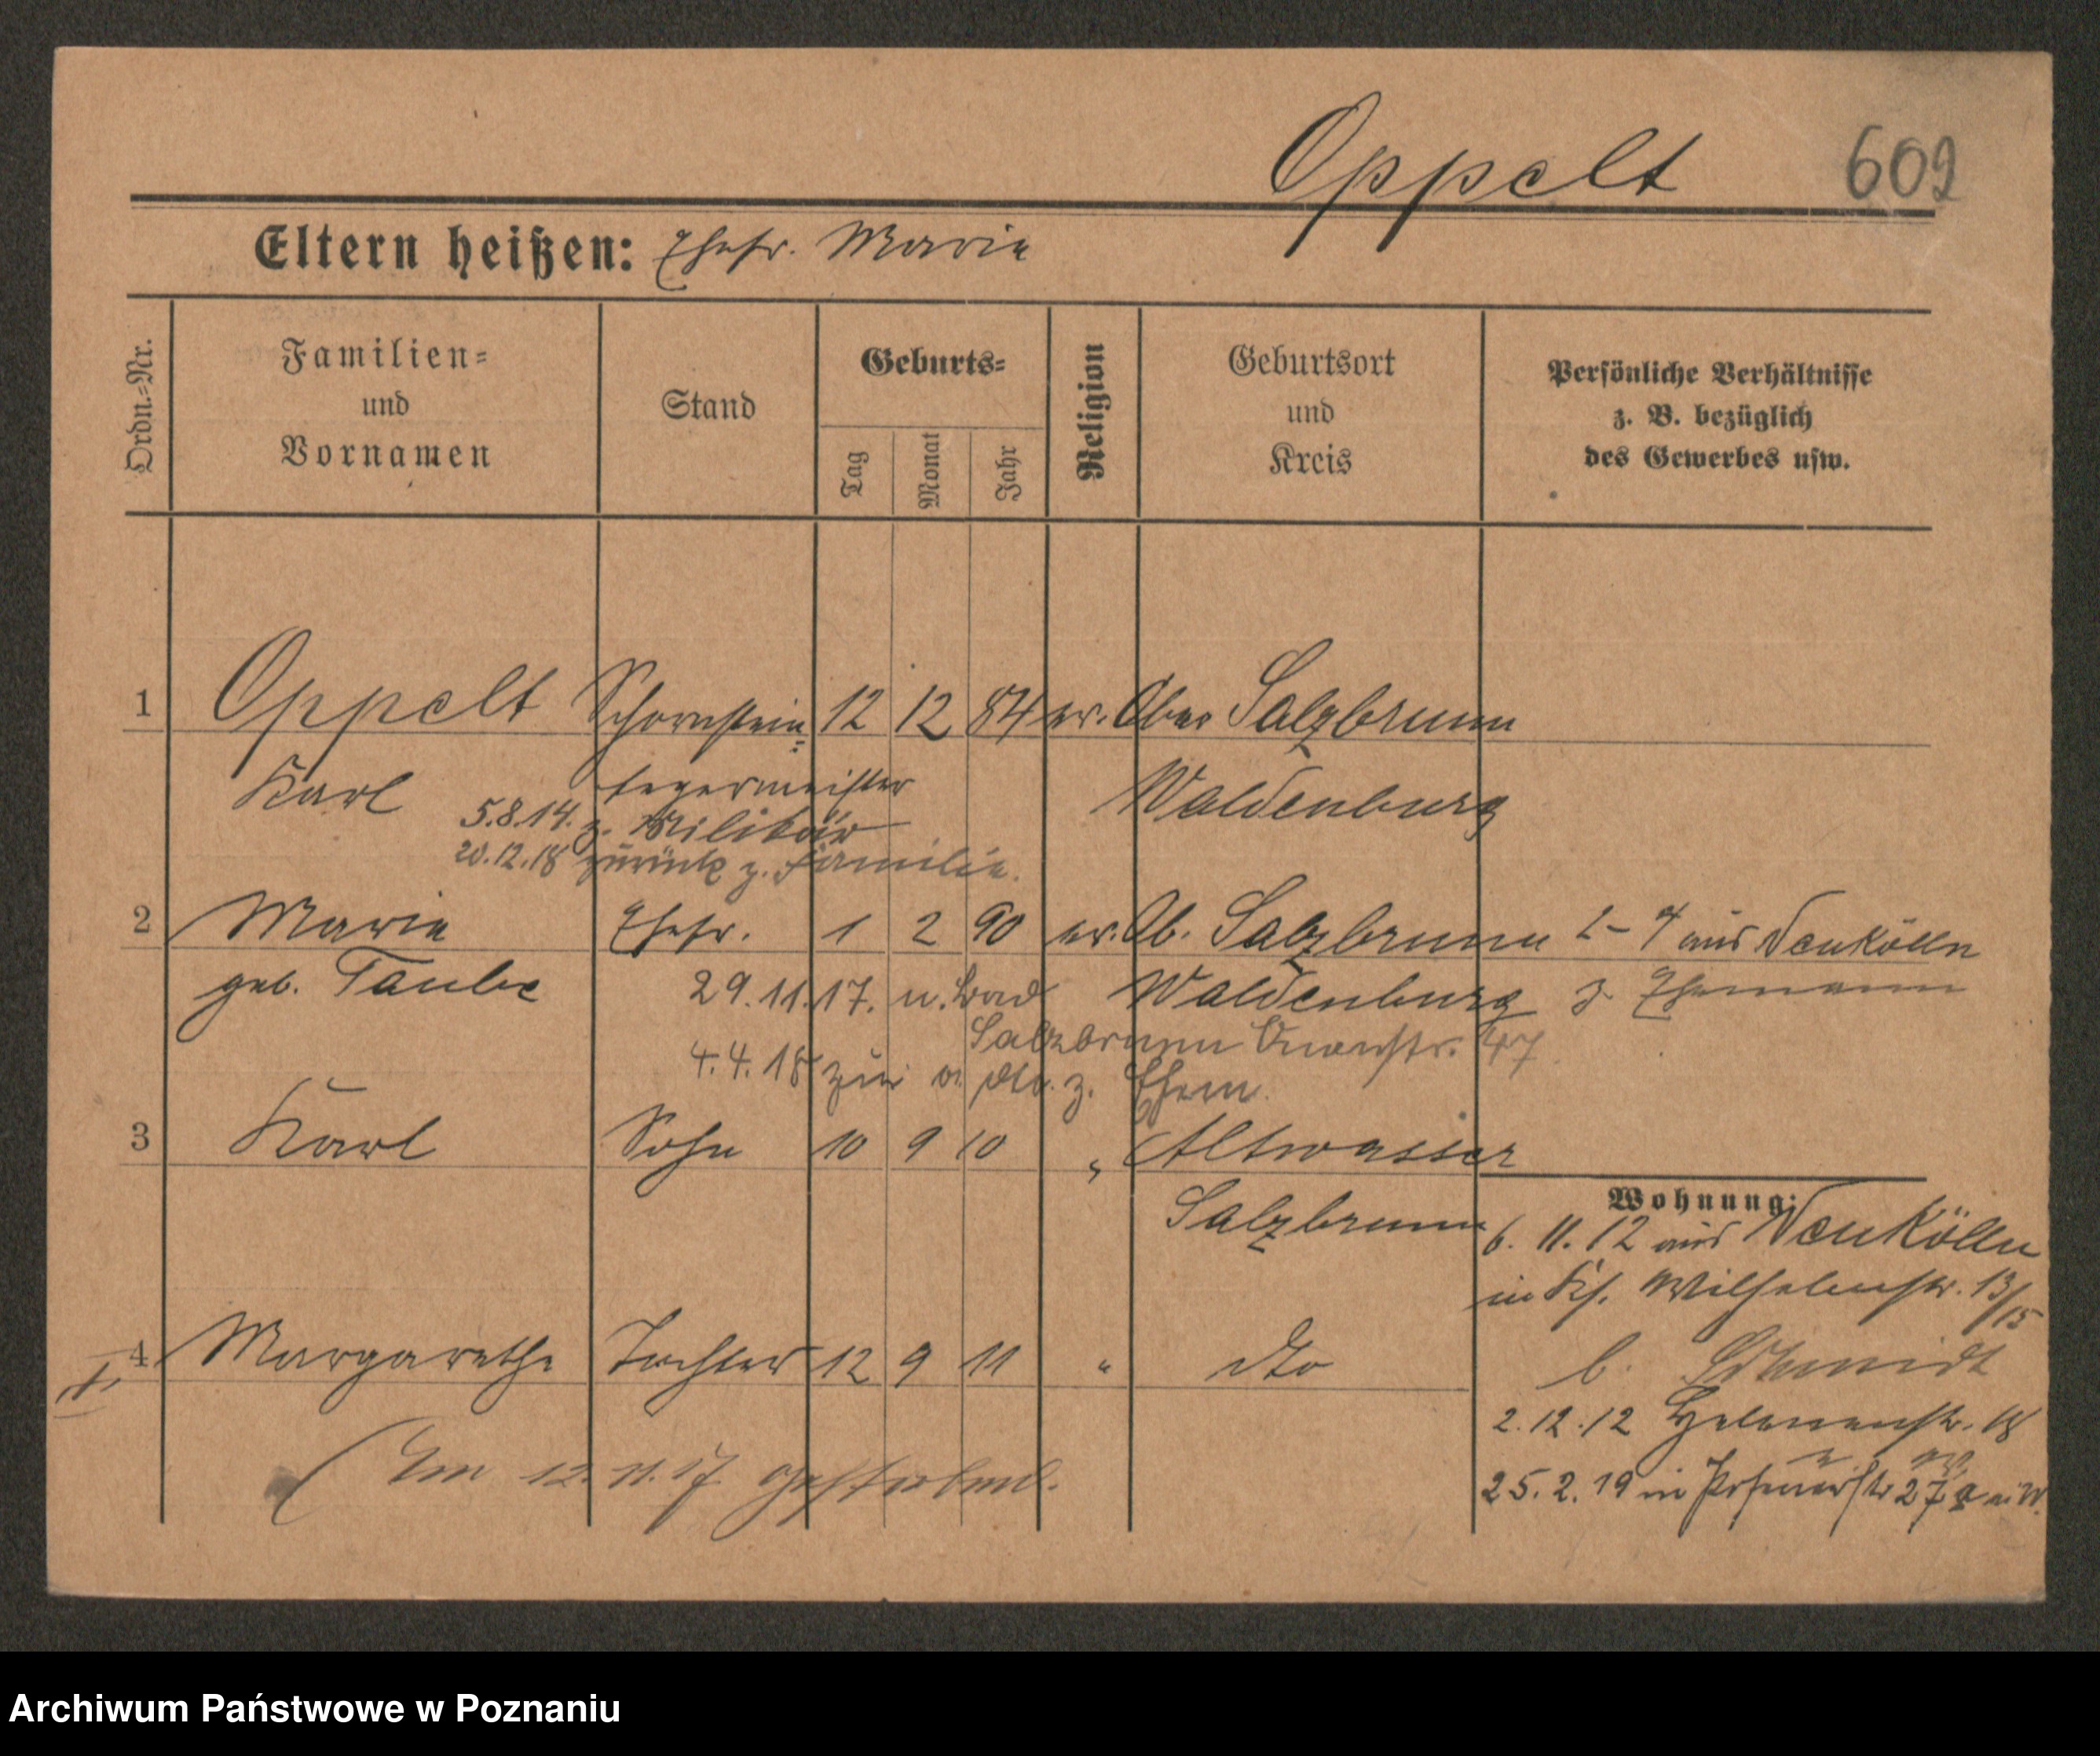 Oppelt 602
Eltern heißen: Ehefr. Marie
Ordn.-Nr.
Familien-
und
Vornamen
Stand
Geburts-
Tag
Monat
Jahr
Religion
Geburtsort
und
Kreis
Persönliche Verhältnisse
z. B. bezüglich
des Gewerbes usw.
1 Oppelt Schornstein- 12 12 84 ev. Ober Salzbrunn
Karl fegermeister Waldenburg
5.8.14. z. Militär
20.12.18 zurück z. Familie.
2 Marie Ehefr. 1 2 90 ev. Ob. Salzbrunn 2-4 aus Neukölln
geb. Taube Waldenburg z. Ehemann
29.11.17. n. Bad
Salzbrunn 47
4.4.18 zur v. dto. z. Ehem.
3 Karl Sohn 10 9 10 " Altwasser
Salzbrunn
Wohnung:
6. 11. 12 aus Neukölln
in Wilhelmstr. 13/15
b. Schmidt
4 Margarethe Tochter 12 9 11 " dto
2.12.12 Helenenstr. 18
Am 12.11.17 gestorben.
25.2.19 in Posenerstr 27a
Archiwum Państwowe w Poznaniu